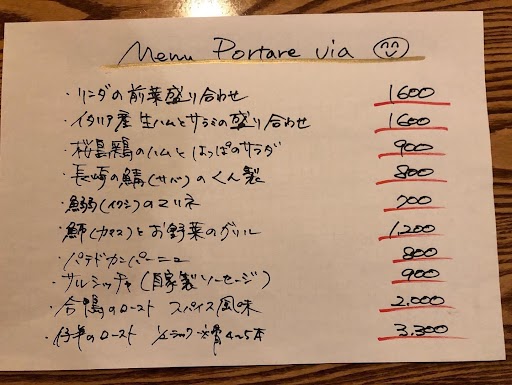 Menu Portare via
・リンダの前菜盛り合わせ 1600
・イタリア産 生ハムとサラミの盛り合わせ 1600
・桜島鶏のハムと はっぱのサラダ 900
・長崎の鯖(サバ)のくん製 800
・鰯(イワシ)のマリネ 700
・魳(カマス)とお野菜のグリル 1,200
・パテドカンパーニュ 800
・サルシッチャ(自家製ソーセージ) 900
・合鴨のロースト スパイス風味 2.000
・仔羊のロースト 4~5本 3.300